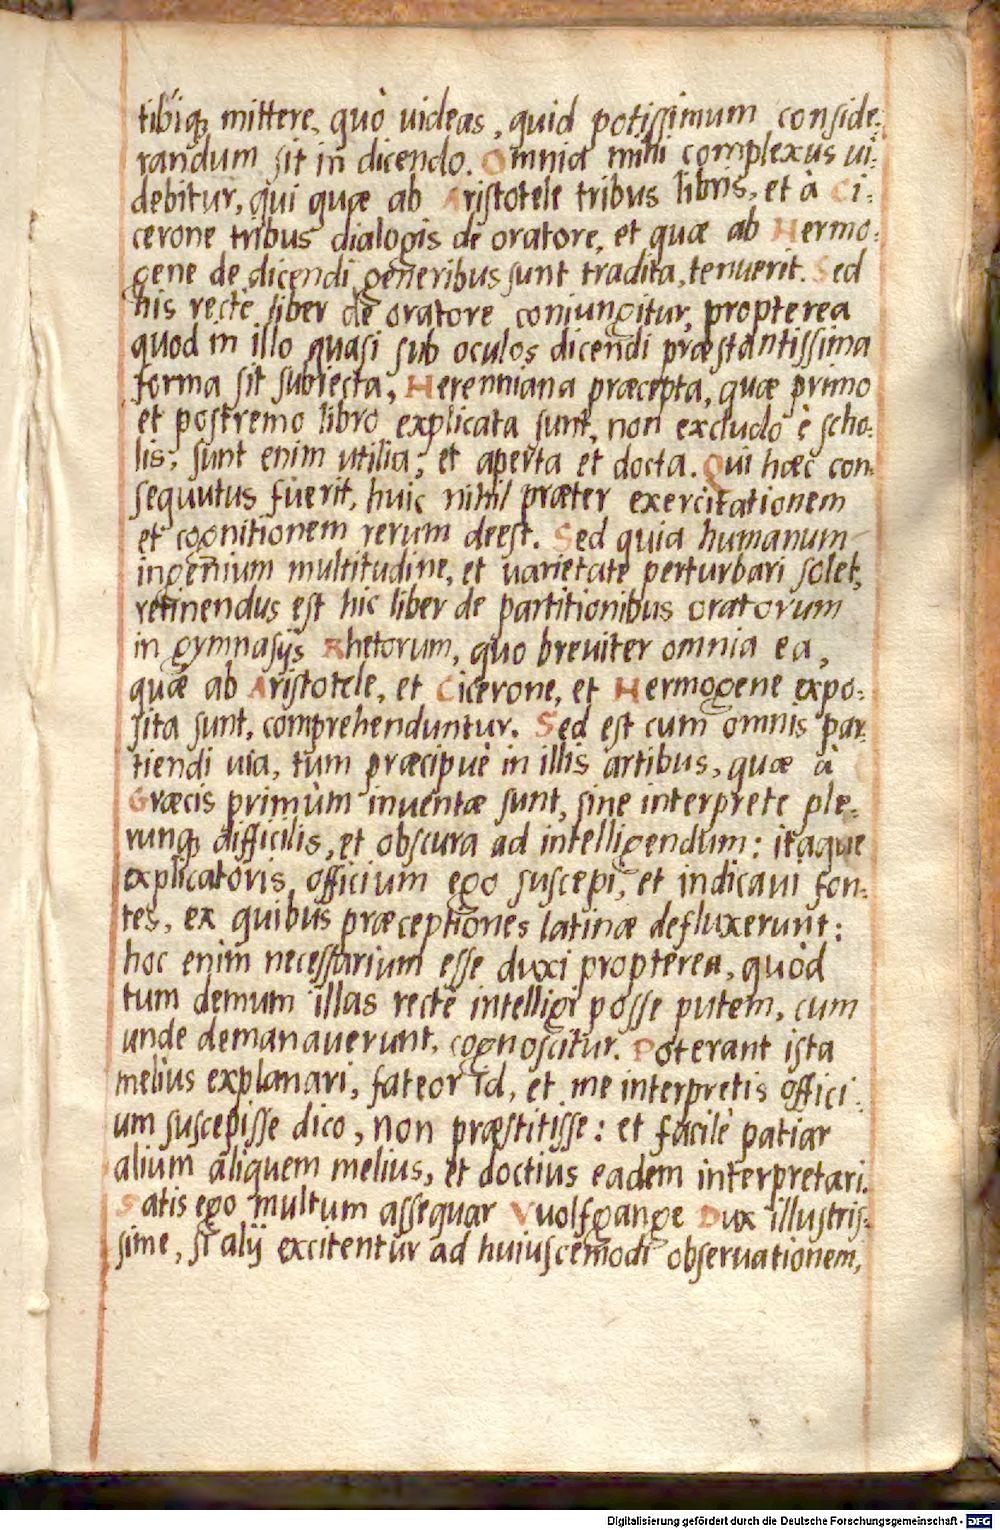 tibíq; mittere, quò uideas, quid potissimum conside-
randum sit in dicendo. Omnia mihi complexus ui-
debitur, qui quæ ab Aristotele tribus libris, et à Ci-
cerone tribus dialogis de oratore, et quæ ab Hermo-
gene de dicendi generibus sunt tradita, tenuerit. Sed
his rectè liber de oratore coniungitur, propterea
quod in illo quasi sub oculos dicendi præstantissima
forma sit subiecta, Herenniana præcepta, quæ primo
et postremo libro explicata sunt, non excludo è scho-
lis; sunt enim utilia, et aperta et docta. Qui hæc con-
sequutus fuerit, huic nihil præter exercitationem
et cognitionem rerum deest. Sed quia humanum
ingenium multitudine, et uarietate perturbari solet,
retinendus est hic liber de partitionibus oratorum
in gymnasijs Rhetorum, quo breuiter omnia ea,
quæ ab Aristotele, et Cicerone, et Hermogene expo-
sita sunt, comprehenduntur. Sed est cum omnis par-
tiendi uia, tum præcipuè in illis artibus, quæ à
Græcis primùm inuentæ sunt, sine interprete ple-
runq; difficilis, et obscura ad intelligendum: itaque
explicatoris officium ego suscepi, et indicaui fon-
tes, ex quibus præceptiones latinæ defluxerunt:
hoc enim necessarium esse duxi propterea, quòd
tum demum illas rectè intelligi posse putem, cum
unde demanauerunt, cognoscitur. Poterant ista
melius explanari, fateor id, et me interpretis offici-
um suscepisse dico, non præstitisse: et facilè patiar
alium aliquem melius, et doctius eadem interpretari.
Satis ego multum assequar Vuolfgange Dux illustris-
sime, si alij excitentur ad huiuscemodi obseruationem,
Digitalisierung gefördert durch die Deutsche Forschungsgemeinschaft - DFG